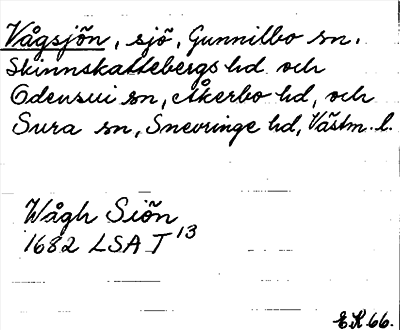 Vågsjön, sjö, Gunnilbo sn.
Skinnskattebergs hd och
Odensvi sn, Åkerbo hd, och
Sura sn, Snevringe hd, Västm. l.
Wågh Siön
1682 LSA T 13
EK 66.